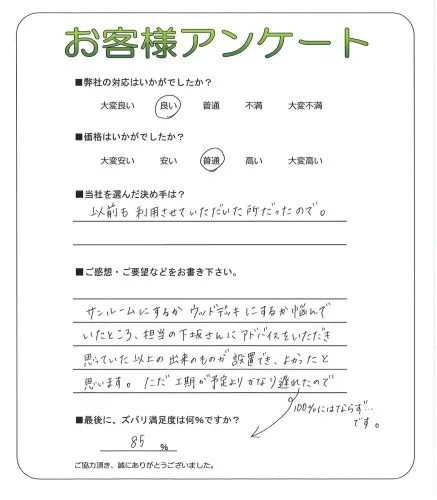 お客様アンケート
■弊社の対応はいかがでしたか?
大変良い 良い 普通 不満 大変不満
■価格はいかがでしたか?
大変安い 安い 普通 高い 大変高い
■当社を選んだ決め手は?
以前も利用させていただいた所だったので。
■ご感想・ご要望などをお書き下さい。
サンルームにするかウッドデッキにするか悩んで
いたところ、担当の下坂さんにアドバイスをいただき
思っていた以上の出来のものが設置でき、よかったと
思います。ただ工期が予定よりかなり遅れたので
100%にはならず…
です。
■最後に、ズバリ満足度は何%ですか?
85 %
ご協力頂き、誠にありがとうございました。